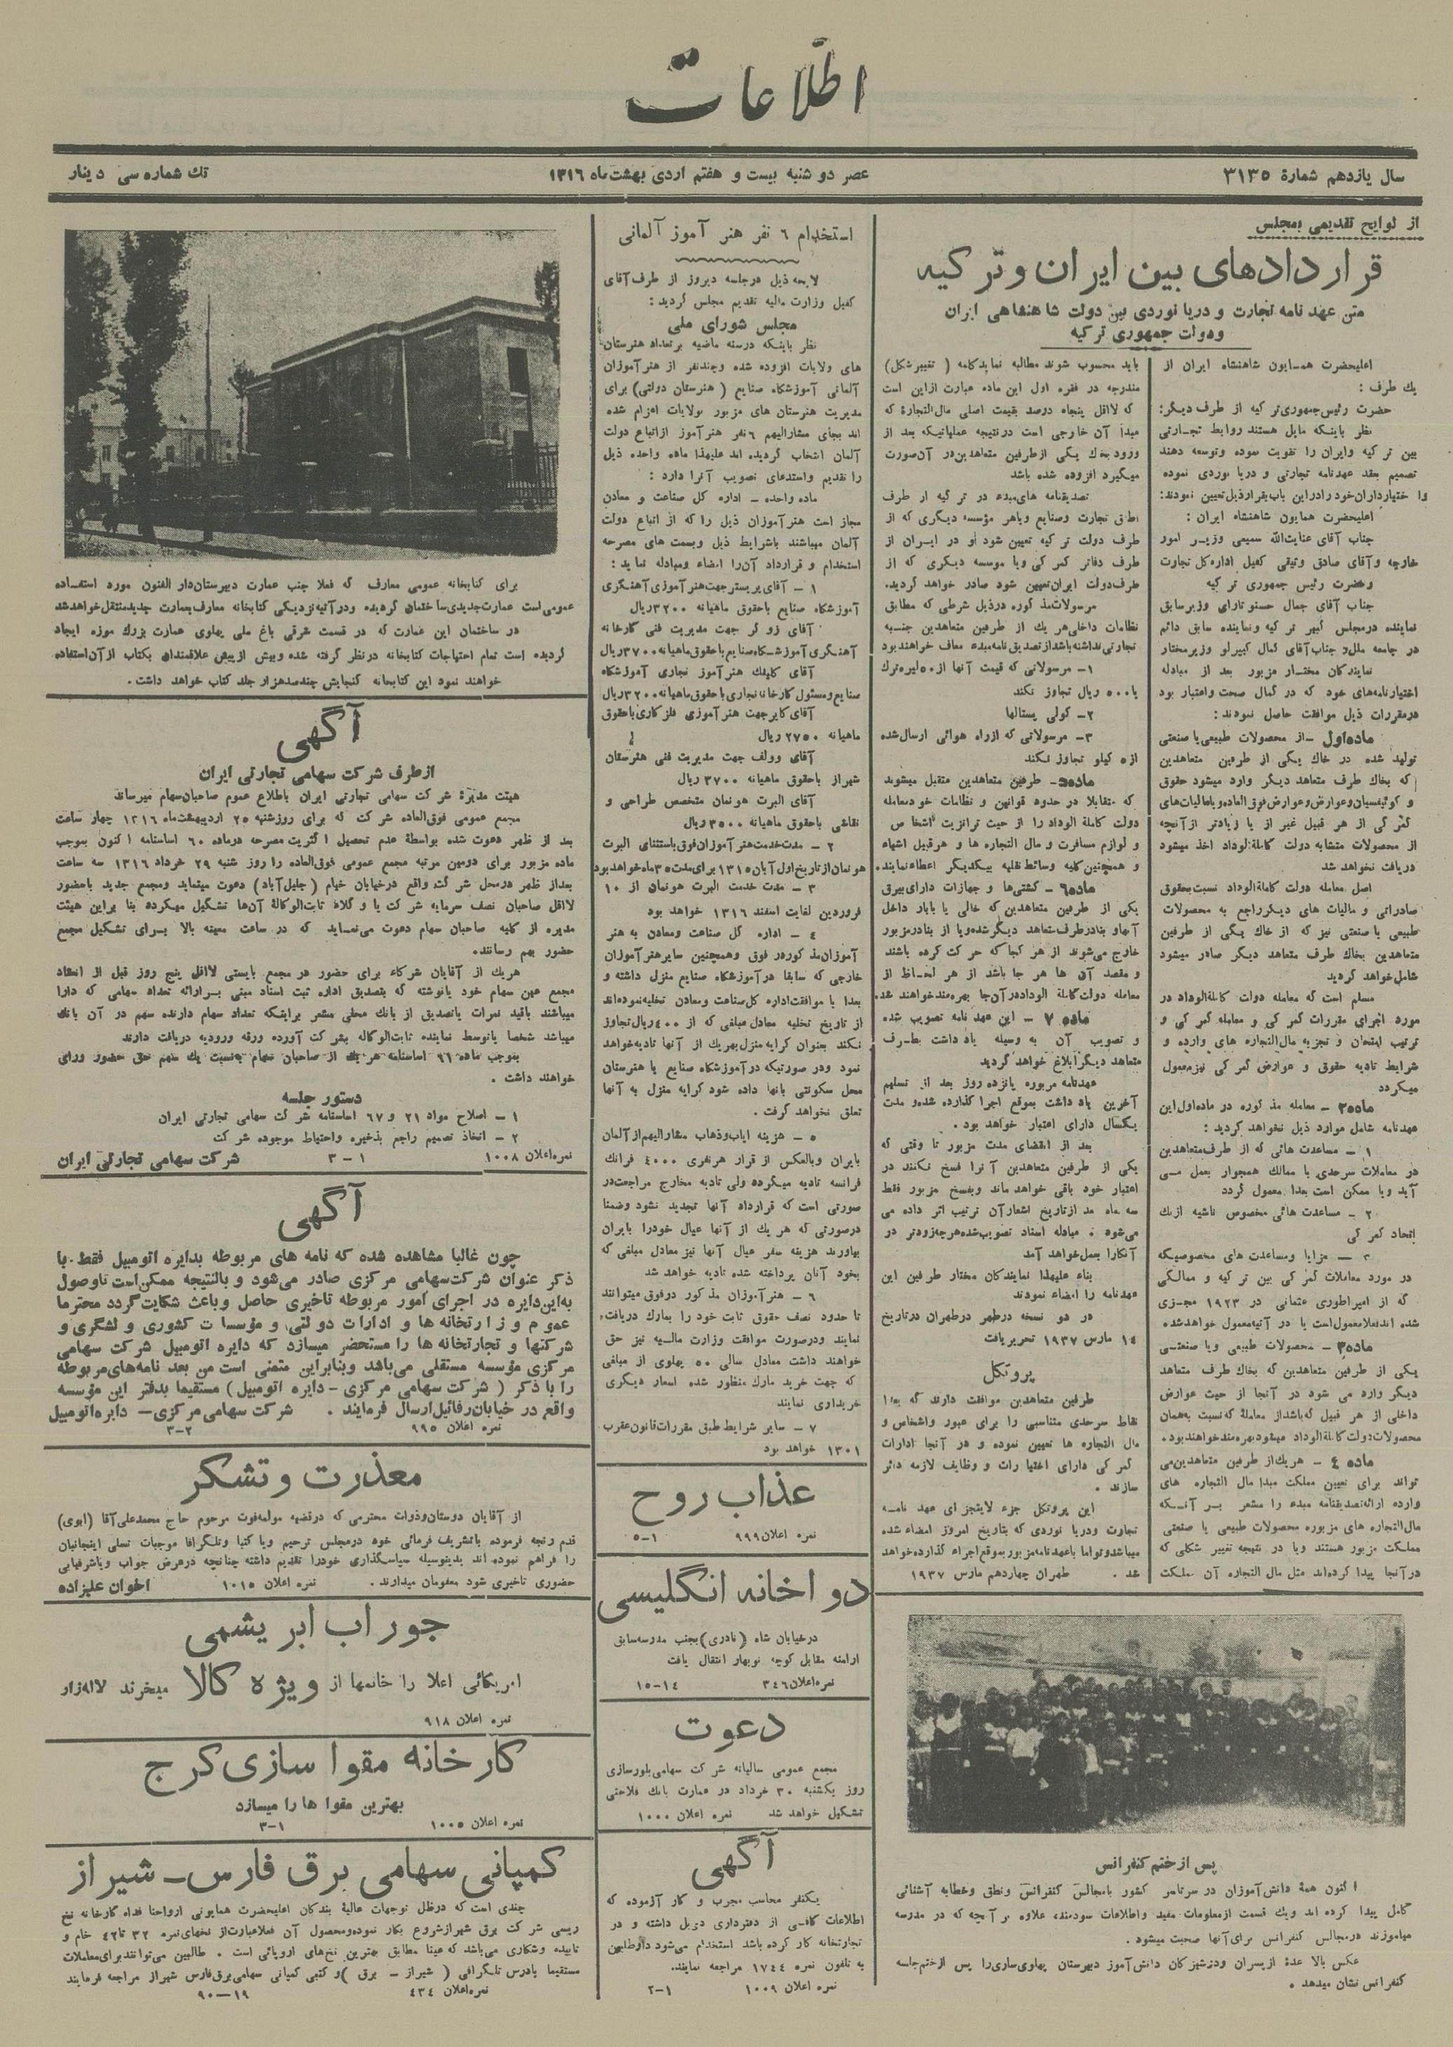 اطلاعات
سال یازدهم شمارهٔ ۳۱۳۵
عصر دو شنبه بیست و هفتم اردی بهشت ماه ۱۳۱۶
تك شماره سی دینار
از لوایح تقدیمی بمجلس
قراردادهای بین ایران وترکیه
متن عهد نامه تجارت و دریا نوردی بین دولت شاهنشاهی ایران
ودولت جمهوری ترکیه
اعلیحضرت همایون شاهنشاه ایران از
یك طرف :
حضرت رئیس جمهوری ترکیه از طرف دیگر:
نظر باینکه مایل هستند روابط تجارتی
بین ترکیه وایران را تقویت نموده وتوسعه دهند
تصمیم بعقد عهدنامه تجارتی و دریا نوردی نموده
و اختیارداران خود را در این باب بقرار ذیل تعیین نمودند:
اعلیحضرت همایون شاهنشاه ایران :
جناب آقای عنایت‌الله سمیعی وزیر امور
خارجه وآقای صادق وثیقی کفیل اداره کل تجارت
وحضرت رئیس جمهوری ترکیه
جناب آقای جمال حسنو تارای وزیر سابق
نماینده در مجلس کبیر ترکیه و نماینده سابق دائم
در جامعه ملل و جناب آقای کمال کپرلو وزیر مختار
نمایندگان مختار مزبور بعد از مبادله
اختیارنامه‌های خود که در کمال صحت واعتبار بود
در مقررات ذیل موافقت حاصل نمودند :
ماده اول - از محصولات طبیعی یا صنعتی
تولید شده در خاك یکی از طرفین متعاهدین
که بخاك طرف متعاهد دیگر وارد میشود حقوق
و کوئفیسیان و عوارض و عوارض فوق العاده و یا مالیات‌های
گمرکی از هر قبیل غیر از یا زیادتر از آنچه
از محصولات مشابه دولت کاملة‌الوداد اخذ میشود
دریافت نخواهد شد
اصل معامله دولت کاملة‌الوداد نسبت بحقوق
صادراتی و مالیات های دیگر راجع به محصولات
طبیعی یا صنعتی نیز که از خاك یکی از طرفین
متعاهدین بخاك طرف متعاهد دیگر صادر میشود
شامل خواهد گردید
مسلم است که معامله دولت کاملة‌الوداد در
مورد اجرای مقررات گمرکی و معامله گمرکی و
ترتیب امتحان و تجزیه مال‌التجاره های وارده و
شرایط تادیه حقوق و عوارض گمرکی نیز معمول
میگردد
ماده ۲ - معامله مذکوره در ماده اول این
عهدنامه شامل موارد ذیل نخواهد گردید :
۱ - مساعدت هائی که از طرف متعاهدین
در معاملات سرحدی با ممالك همجوار بعمل می
آید ویا ممکن است بعدا معمول گردد
۲ - مساعدت هائی مخصوص ناشیه از یك
اتحاد گمرکی
۳ - مزایا ومساعدت های مخصوصیکه
در مورد معاملات گمرکی بین ترکیه و ممالکی
که از امپراطوری عثمانی در ۱۹۲۳ مجزی
شده اند فعلا معمول است یا در آتیه معمول خواهد شد
ماده ۳ - محصولات طبیعی ویا صنعتی
یکی از طرفین متعاهدین که بخاك طرف متعاهد
دیگر وارد می شود در آنجا از حیث عوارض
داخلی از هر قبیل که باشد از معامله که نسبت به همان
محصولات دولت کاملة‌الوداد میشود بهره مند خواهند بود.
ماده ٤ - هر یك از طرفین متعاهدین می
تواند برای تعیین مملکت مبدا مال التجاره های
وارده ارائه تصدیقنامه مبدء را مشعر بر آنکه
مال التجاره های مزبوره محصولات طبیعی یا صنعتی
مملکت مزبور هستند ویا در نتیجه تغییر شکلی که
در آنجا پیدا کرده اند مثل مال التجاره آن مملکت
باید محسوب شوند مطالبه نماید کلمه ( تغییر شکل)
مندرجه در فقره اول این ماده عبارت از این است
که لااقل پنجاه درصد بقیمت اصلی مال التجارة که
مبدأ آن خارجی است در نتیجه عملیاتیکه بعد از
ورود بخاك یکی از طرفین متعاهدین در آن صورت
میگیرد افزوده شده باشد
تصدیقنامه های مبدء در ترکیه از طرف
اطاق تجارت وصنایع ویا هر مؤسسه دیگری که از
طرف دولت ترکیه تعیین شود و در ایران از
طرف دفاتر گمرکی ویا موسسه دیگری که از
طرف دولت ایران تعیین شود صادر خواهد گردید.
مرسولات مذکوره در ذیل شرطی که مطابق
نظامات داخلی هر یك از طرفین متعاهدین جنبه
تجارتی نداشته باشد از تصدیق نامه مبدء معاف خواهند بود
۱ - مرسولاتی که قیمت آنها از ۵۰ لیره ترك
یا ۵۰۰ ریال تجاوز نکند
۲ - کولی پستالها
۳ - مرسولاتی که از راه هوائی ارسال شده
از ۵ کیلو تجاوز نکند
ماده ۵ - طرفین متعاهدین متقبل میشوند
که متقابلا در حدود قوانین و نظامات خود معامله
دولت کاملة الوداد را از حیث ترانزیت اشخاص
و لوازم مسافرت و مال التجاره ها و هر قبیل اشیاء
و همچنین کلیه وسائط نقلیه بیکدیگر اعطاء نمایند.
ماده ٦ - کشتی‌ها و جهازات دارای بیرق
یکی از طرفین متعاهدین که خالی یا بابار داخل
آبها و بنادر طرف متعاهد دیگر شده و یا از بنادر مزبور
خارج می‌شوند از هر کجا که حرکت کرده باشند
و مقصد آن ها هر جا باشد از هر لحاظ از
معامله دولت کاملة الوداد در آن جا بهره مند خواهند شد.
ماده ۷ - این عهد نامه تصویب شده
و تصویب آن به وسیله یادداشت بطرف
متعاهد دیگر ابلاغ خواهد گردید
عهدنامه مزبوره پانزده روز بعد از تسلیم
آخرین یاد داشت بموقع اجرا گذارده شده و مدت
یکسال دارای اعتبار خواهد بود .
بعد از انقضای مدت مزبور تا وقتی که
یکی از طرفین متعاهدین آنرا فسخ نکنند در
اعتبار خود باقی خواهد ماند وبفسخ مزبور فقط
سه ماه بعد از تاریخ اشعار آن ترتیب اثر داده می
می‌شود . مبادله اسناد تصویب شده هرچه زودتر در
آنکارا بعمل خواهد آمد
بناء علیهذا نمایندگان مختار طرفین این
عهدنامه را امضاء نمودند
در دو نسخه در طهر درطهران در تاریخ
۱٤ مارس ۱۹۳۷ تحریر یافت
پروتکل
طرفین متعاهدین موافقت دارند که بعدا
نقاط سرحدی متناسبی را برای عبور واشخاص و
مال التجاره ها تعیین نموده و در آنجا ادارات
گمرکی دارای اختیارات و وظایف لازمه دائر
سازند .
این پروتکل جزء لایتجزای عهد نامه
تجارت ودریا نوردی که بتاریخ امروز امضاء شده
میباشد و تواما با عهدنامه مزبور بموقع اجراء گذارده خواهد
شد . طهران چهاردهم مارس ۱۹۳۷
پس از ختم کنفرانس
اکنون همهٔ دانش‌آموزان در سرتاسر کشور با مجالس کنفرانس ونطق وخطابه آشنائی
کامل پیدا کرده اند ویك قسمت از معلومات مفید واطلاعات سودمند، علاوه بر آنچه که در مدرسه
میاموزند در مجالس کنفرانس برای آنها صحبت میشود .
عکس بالا عدهٔ از پسران ودوشیزگان دانش آموز دبیرستان پهلوی ساری را پس از ختم جلسه
کنفرانس نشان میدهد .
استخدام ٦ نفر هنر آموز آلمانی
لایحه ذیل در جلسه دیروز از طرف آقای
کفیل وزارت مالیه تقدیم مجلس گردید :
مجلس شورای ملی
نظر باینکه در سنه ماضیه بر تعداد هنرستان
های ولایات افزوده شده وچند نفر از هنرآموزان
آلمانی آموزشگاه صنایع ( هنرستان دولتی) برای
مدیریت هنرستان های مزبور بولایات اعزام شده
اند بجای مشارالیهم ٦ نفر هنرآموز از اتباع دولت
آلمان انتخاب گردیده اند علیهذا ماده واحده ذیل
را تقدیم واستدعای تصویب آنرا دارد :
ماده واحده - اداره کل صناعت و معادن
مجاز است هنرآموزان ذیل را که از اتباع دولت
آلمان میباشند باشرایط ذیل وبسمت های مصرحه
استخدام و قرارداد آن را امضاء ومبادله نماید :
۱ - آقای بریستر جهت هنرآموزی آهنگری
آموزشگاه صنایع با حقوق ماهیانه ۳۲۰۰ ریال
آقای زولر جهت مدیریت فنی کارخانه
آهنگری آموزشگاه صنایع با حقوق ماهیانه ۳۷۰۰ ریال
آقای کلینك هنرآموز نجاری آموزشگاه
صنایع ومسئول کارخانه نجاری با حقوق ماهیانه ۳۲۰۰ ریال
آقای کایر جهت هنرآموزی فلزکاری با حقوق
ماهیانه ۲۷۵۰ ریال
آقای وولف جهت مدیریت فنی هنرستان
شیراز باحقوق ماهیانه ۳۷۰۰ ریال
آقای البرت هونمان متخصص طراحی و
نقاشی باحقوق ماهیانه ۳۵۰۰ ریال
۲ - مدت خدمت هنرآموزان فوق باستثنای البرت
هونمان از تاریخ اول آبان ۱۳۱۵ برای مدت ۳۵ ماه خواهد بود
۳ - مدت خدمت البرت هونمان از ۱۰
فروردین لغایت اسفند ۱۳۱٦ خواهد بود
٤ - اداره کل صناعت ومعادن به هنر
آموزان مذکور در فوق وهمچنین سایر هنرآموزان
خارجی که سابقا در آموزشگاه صنایع منزل داشته و
بعدا با موافقت اداره کل صناعت ومعادن تخلیه نموده‌اند
از تاریخ تخلیه معادل مبلغی که از ٤۰۰ ریال تجاوز
نکند بعنوان کرایه منزل بهریك از آنها تادیه خواهد
نمود ودر صورتیکه در آموزشگاه صنایع یا هنرستان
محل سکونتی بآنها داده شود کرایه منزل به آنها
تعلق نخواهد گرفت .
۵ - هزینه ایاب وذهاب مشارالیهم از آلمان
بایران وبالعکس از قرار هر نفری ٤۰۰۰ فرانك
فرانسه تادیه میگردد ولی تادیه مخارج مراجعت در
صورتی است که قرارداد آنها تجدید نشود وضمنا
در صورتی که هر یك از آنها عیال خود را بایران
بیاورند هزینه سفر عیال آنها نیز معادل مبلغی که
بخود آنان پرداخته شده تادیه خواهد شد
٦ - هنرآموزان مذکور در فوق میتوانند
تا حدود نصف حقوق ثابت خود را بمارك دریافت
نمایند ودر صورت موافقت وزارت مالیه نیز حق
خواهند داشت معادل سالی ۵۰ پهلوی از مبلغی
که جهت خرید مارك منظور شده اسعار دیگری
خریداری نمایند
۷ - سایر شرایط طبق مقررات قانون عقرب
۱۳۰۱ خواهد بود
عذاب روح
نمره اعلان ۹۹۹ ۱-۵
دواخانه انگلیسی
در خیابان شاه (نادری) بجنب مدرسه سابق
ارامنه مقابل کوچه نوبهار انتقال یافت
نمره اعلان ۳٤٦ ۱٤-۱۵
دعوت
مجمع عمومی سالیانه شرکت سهامی بلورسازی
روز یکشنبه ۳۰ خرداد در عمارت بانك فلاحتی
تشکیل خواهد شد نمره اعلان ۱۰۰۰
آگهی
یکنفر محاسب مجرب و کار آزموده که
اطلاعات کافی از دفترداری دوبل داشته و در
تجارتخانه کار کرده باشد استخدام می‌شود داوطلبین
به تلفون نمره ۱۷٤٤ مراجعه نمایند.
نمره اعلان ۱۰۰۹ ۱-۲
برای کتابخانه عمومی معارف که فعلا جنب عمارت دبیرستان دار الفنون مورد استفاده
عمومی است عمارت جدیدی ساختمان گردیده ودر آتیه نزدیکی کتابخانه معارف بعمارت جدید منتقل خواهد شد
در ساختمان این عمارت که در قسمت شرقی باغ ملی پهلوی عمارت بزرك موزه ایجاد
گردیده است تمام احتیاجات کتابخانه در نظر گرفته شده وبیش از پیش علاقمندان بکتاب از آن استفاده
خواهند نمود این کتابخانه گنجایش چندصد هزار جلد کتاب خواهد داشت .
آگهی
از طرف شرکت سهامی تجارتی ایران
هیئت مدیرهٔ شرکت سهامی تجارتی ایران باطلاع عموم صاحبان سهام میرساند
مجمع عمومی فوق‌العاده شرکت که برای روز شنبه ۲۵ اردیبهشت ماه ۱۳۱٦ چهار ساعت
بعد از ظهر دعوت شده بواسطهٔ عدم تحصیل اکثریت مصرحه در ماده ٦۰ اساسنامه اکنون بموجب
ماده مزبور برای دومین مرتبه مجمع عمومی فوق‌العاده را روز شنبه ۲۹ خرداد ۱۳۱٦ سه ساعت
بعد از ظهر در محل شرکت واقع در خیابان خیام (جلیل‌آباد) دعوت مینماید ومجمع جدید باحضور
لااقل صاحبان نصف سرمایه شرکت یا وکلاء ثابت‌الوکالهٔ آن‌ها تشکیل میگردد بنا براین هیئت
مدیره از کلیه صاحبان سهام دعوت می‌نماید که در ساعت معینه بالا برای تشکیل مجمع
حضور بهم رسانند.
هریك از آقایان شرکاء برای حضور در مجمع بایستی لااقل پنج روز قبل از انعقاد
مجمع عین سهام خود یا نوشته که بتصدیق اداره ثبت اسناد مبنی بر ارائه تعداد سهامی که دارا
میباشند باقید نمرات یا تصدیق از بانك محلی مشعر براینکه تعداد سهام دارنده سهم در آن بانك
میباشد شخصا یا توسط نماینده ثابت‌الوکاله بشرکت آورده ورقه ورودیه دریافت دارند
بموجب ماده ٦۱ اساسنامه هر یك از صاحبان سهام به نسبت یك سهم حق حضور و رای
خواهند داشت .
دستور جلسه
۱ - اصلاح مواد ۲۱ و ٦۷ اساسنامه شرکت سهامی تجارتی ایران
۲ - اتخاذ تصمیم راجع بذخیره واحتیاط موجوده شرکت
نمره اعلان ۱۰۰۸ ۱-۳ شرکت سهامی تجارتی ایران
آگهی
چون غالبا مشاهده شده که نامه های مربوطه بدایره اتومبیل فقط با
ذکر عنوان شرکت سهامی مرکزی صادر می‌شود و بالنتیجه ممکن است تا وصول
به این دایره در اجرای امور مربوطه تاخیری حاصل وباعث شکایت گردد محترما
عموم وزارتخانه ها و ادارات دولتی و مؤسسات کشوری و لشگری و
شرکتها و تجارتخانه ها را مستحضر میسازد که دایره اتومبیل شرکت سهامی
مرکزی مؤسسه مستقلی می‌باشد وبنابراین متمنی است من بعد نامه‌های مربوطه
را باذکر (شرکت سهامی مرکزی - دایره اتومبیل) مستقیما بدفتر این مؤسسه
واقع در خیابان رفائیل ارسال فرمایند . شرکت سهامی مرکزی - دایره اتومبیل
نمره اعلان ۹۹۵ ۲-۳
معذرت و تشکر
از آقایان دوستان وذوات محترمی که در قضیه مولمه فوت مرحوم حاج محمدعلی آقا (ابوی)
قدم رنجه فرموده باتشریف فرمائی خود در مجلس ترحیم ویا کتبا وتلگرافا موجبات تسلی اینجانبان
را فراهم نموده اند بدینوسیله سپاسگذاری خود را تقدیم داشته چنانچه در عرض جواب ویا شرفیابی
حضوری تاخیری شود معفومان میدارند. نمره اعلان ۱۰۱۵ اخوان علیزاده
جوراب ابریشمی
امریکائی اعلا را خانمها از ویژه کالا میخرند لاله‌زار
نمره اعلان ۹۱۸
کارخانه مقوا سازی کرج
بهترین مقوا ها را میسازد
نمره اعلان ۱۰۰۵ ۱-۳
کمپانی سهامی برق فارس - شیراز
چندی است که در ظل توجهات عالیهٔ بندگان اعلیحضرت همایونی ارواحنا فداه کارخانه نخ
ریسی شرکت برق شیراز شروع بکار نموده ومحصول آن فعلا عبارت از نخهای نمره ۳۲ تا ٤۲ خام و
تابیده وشکاری می‌باشد که عینا مطابق بهترین نخ‌های اروپائی است . طالبین می‌توانند برای معاملات
مستقیما بادرس تلگرافی ( شیراز - برق ) و کتبی کمپانی سهامی برق فارس شیراز مراجعه فرمایند
نمره اعلان ٤۳٤ ۱۹-۹۰